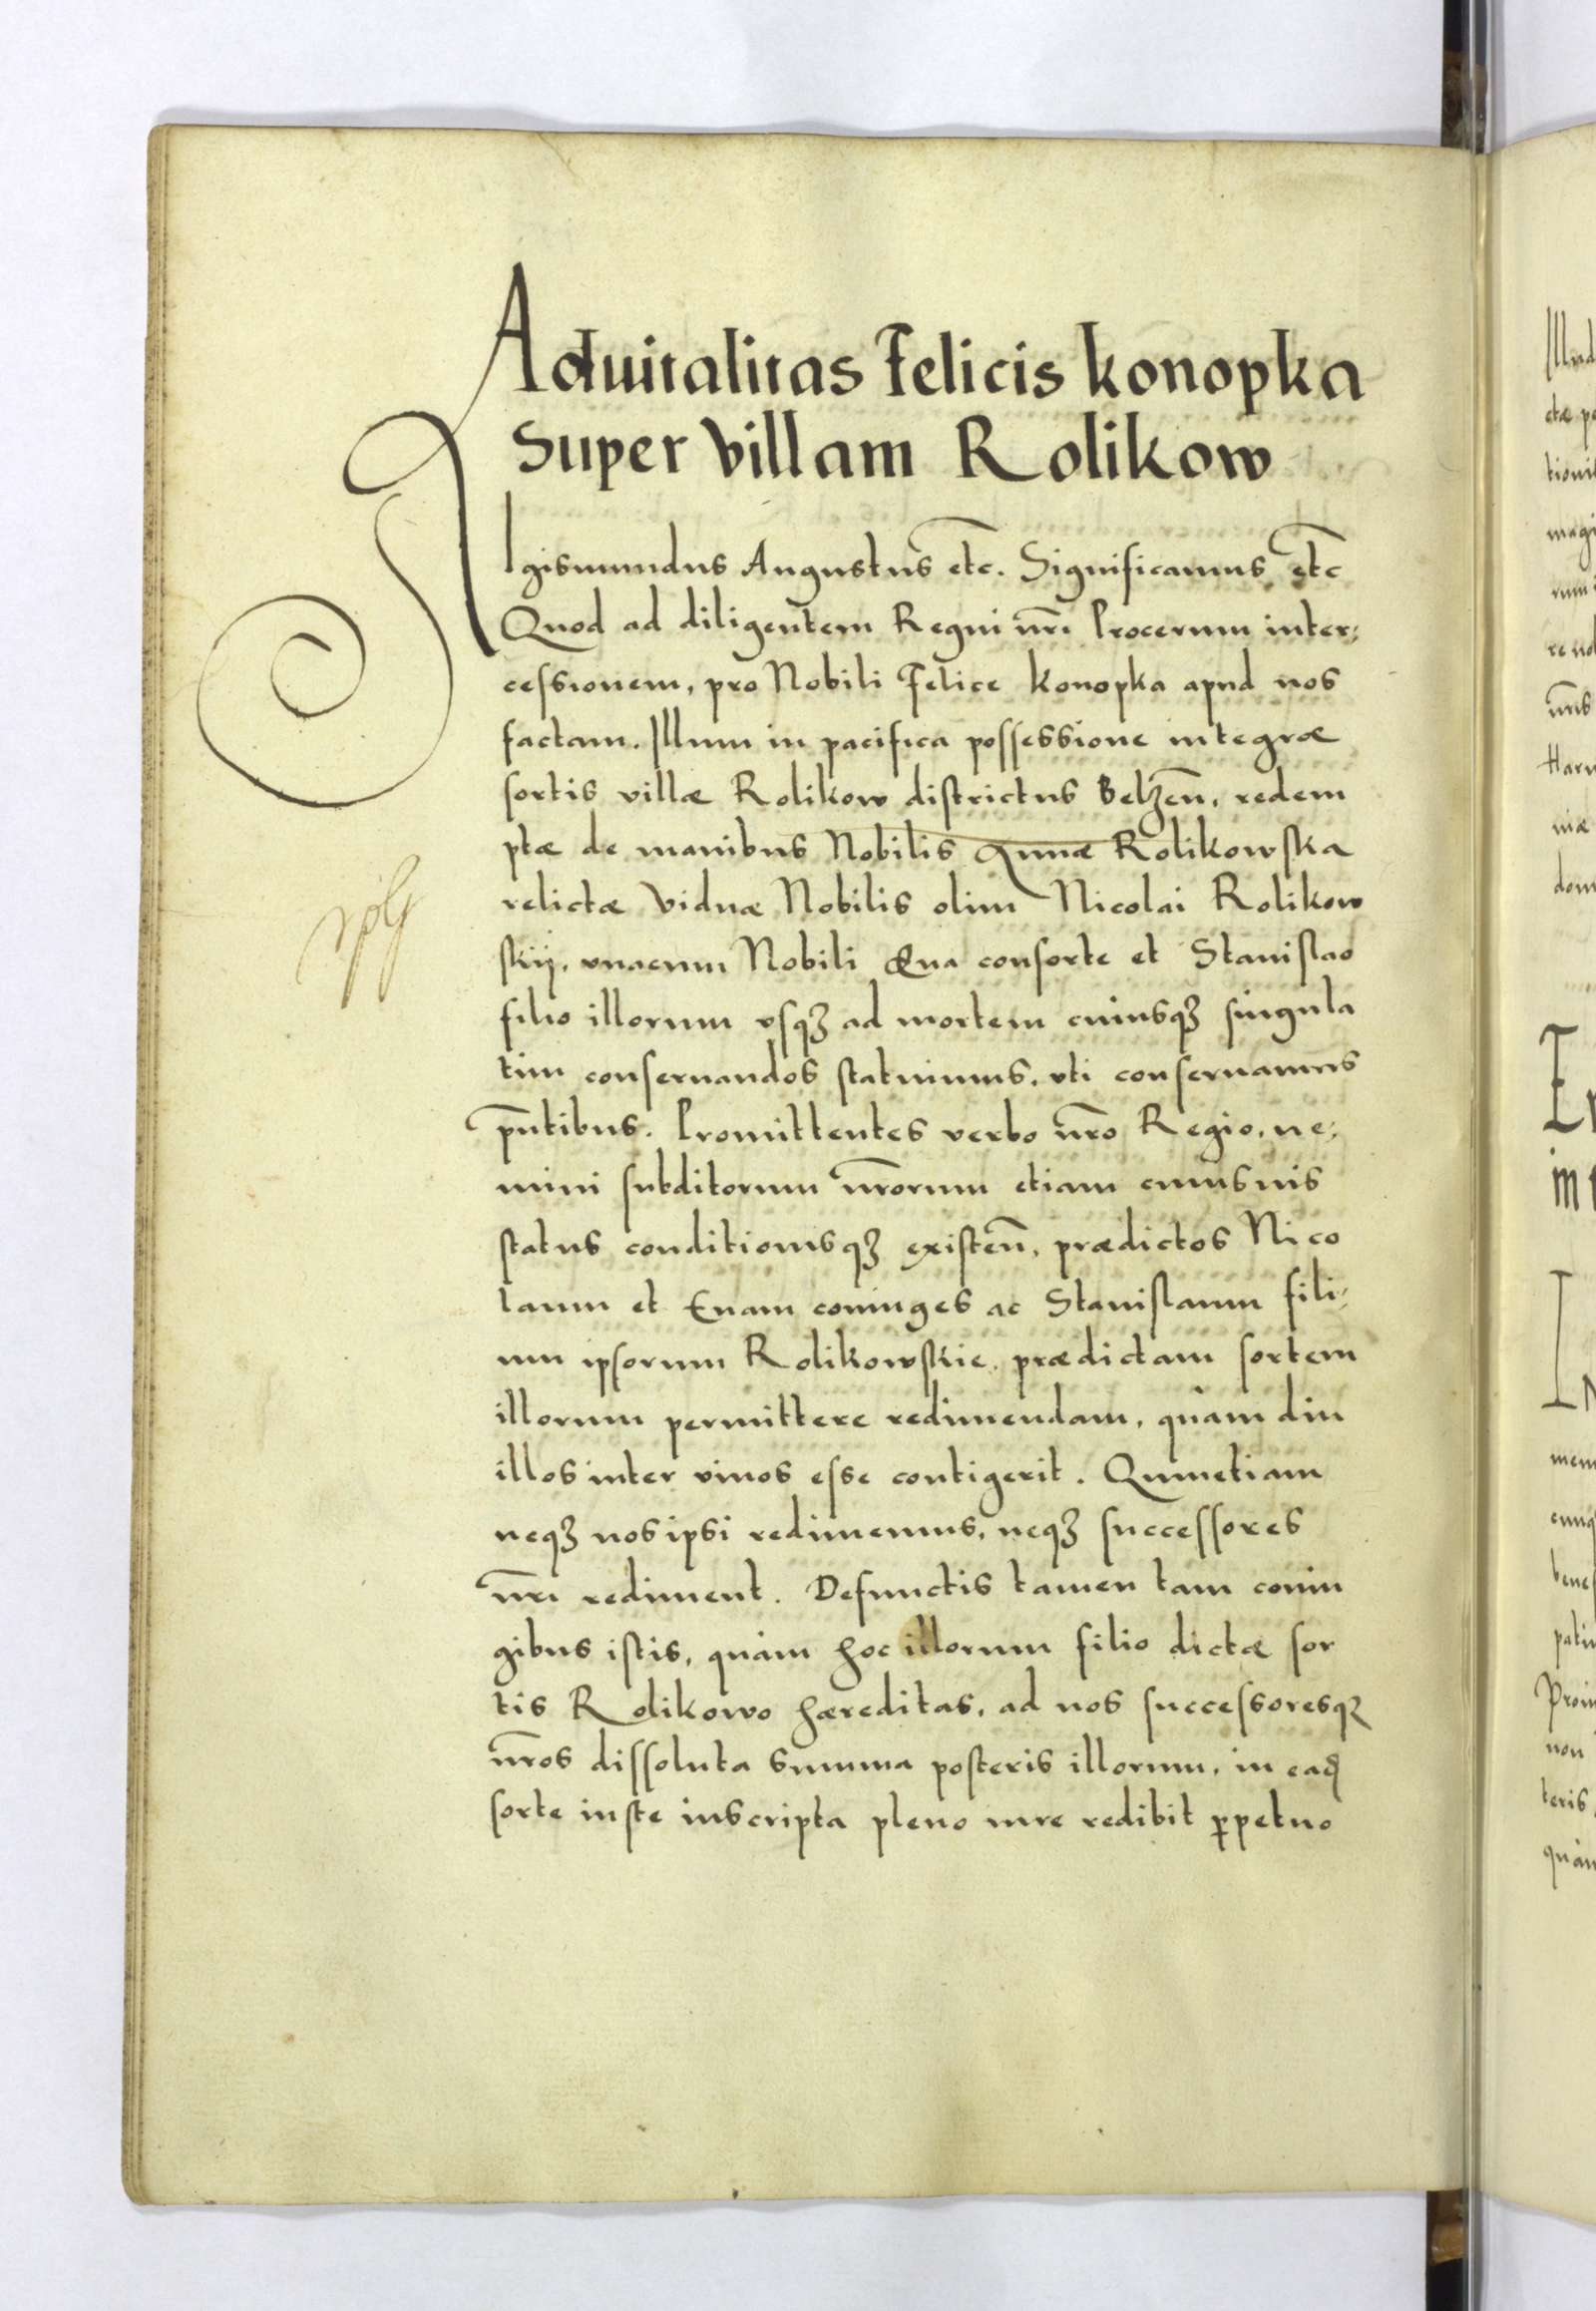 Aduitalitas Felicis Konopka
Super Villam Rolikow
Sigismundus Augustus etc. Significamus etc
Quod ad diligentem Regni nr̃i Procerum inter;
cessionem, pro Nobili Felice Konopka apud nos
factam. Illum in pacifica possessione integræ
sortis villæ Rolikow districtus Belzeñ. redem
ptæ de manibus Nobilis Annæ Rolikowska
relictæ Viduæ Nobilis olim Nicolai Rolikow
skij, vnacum Nobili Eua consorte et Stanislao
filio illorum vsqʒ ad mortem cuiusqʒ singula
tim conseruandos statuimus, vti conseruamus
p̃ntibus. Promittentes verbo nr̃o Regio, ne;
mini subditorum nr̃orum etiam cuiusuis
status conditionisqʒ existeñ, prædictos Nico
laum et Euam coniuges ac Stanislaum fili;
um ipsorum Rolikowskie, prædictam sortem
illorum permittere redimendam, quàm diu
illos inter viuos esse contigerit. Quinetiam
neqʒ nos ipsi redimemus, neqʒ successores
nr̃i rediment. Defunctis tamen tam coniu
gibus istis, quàm hoc illorum filio dictæ sor
tis Rolikowo hæreditas, ad nos successoresqʒ
nr̃os dissoluta summa posteris illorum, in eadē
sorte iuste inscripta pleno iure redibit p̱petuo